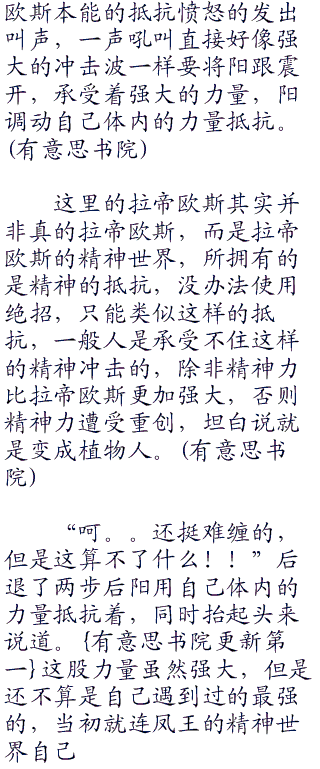 欧斯本能的抵抗愤怒的发出
叫声，一声吼叫直接好像强
大的冲击波一样要将阳跟震
开，承受着强大的力量，阳
调动自己体内的力量抵抗。
(有意思书院)
这里的拉帝欧斯其实并
非真的拉帝欧斯，而是拉帝
欧斯的精神世界，所拥有的
是精神的抵抗，没办法使用
绝招，只能类似这样的抵
抗，一般人是承受不住这样
的精神冲击的，除非精神力
比拉帝欧斯更加强大，否则
精神力遭受重创，坦白说就
是变成植物人。(有意思书
院)
“呵。。还挺难缠的，
但是这算不了什么！！”后
退了两步后阳用自己体内的
力量抵抗着，同时抬起头来
说道。{有意思书院更新第
一}这股力量虽然强大，但是
还不算是自己遇到过的最强
的，当初就连凤王的精神世
界自己